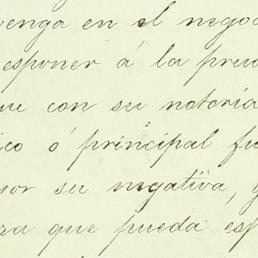 venga en el negoc
esponer á la pru
ue con su notoria
ico ó principal fu
por su negativa, y
za que pueda esp